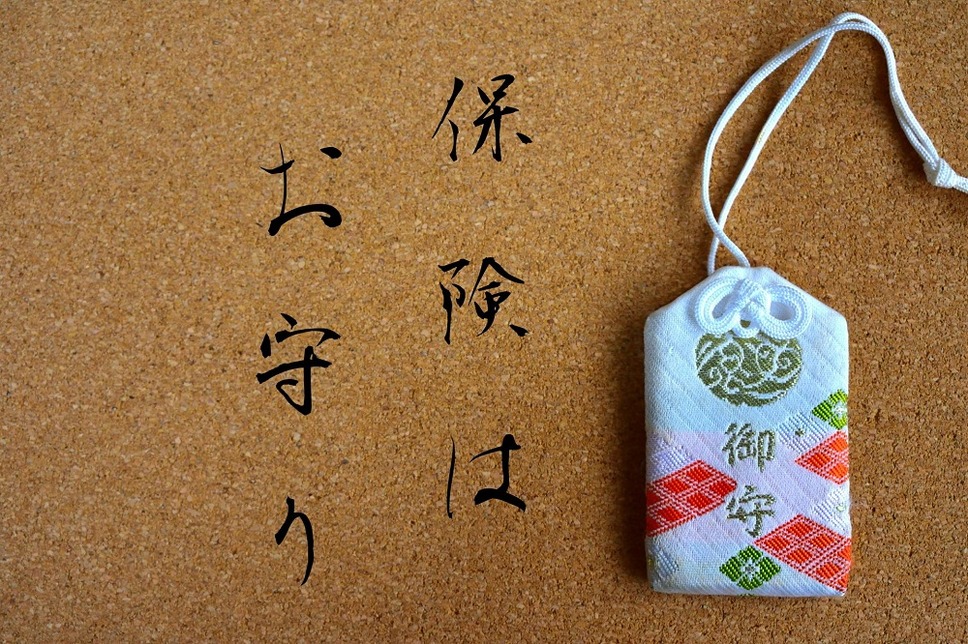 保険は
お守り
御守